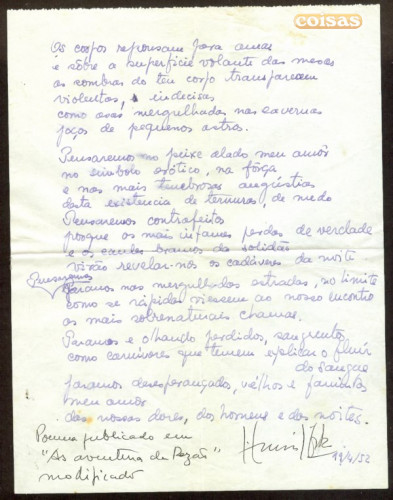 coisas
Os corpos repousam para amar
é sôbre a superfície volante das mesas
as sombras do teu corpo transparecem
violentas, indecisas
como asas mergulhadas nas cavernas
poços de pequenos astros.
Pensaremos no peixe alado meu amôr
no símbolo exótico, na fôrça
e nas mais tenebrosas angústias
desta existencia de ternuras, de mêdo
Pensaremos contrafeitos
porque os mais infames perdas de verdade
e os caules brancos da solidão
virão revelar-nos os cadáveres da noite
Pensaremos
Paramos nas mergulhadas estradas, no limite
como se rápidos viessem ao nosso encontro
as mais sobrenaturais chamas.
Paramos e olhando perdidos, sangrentos
como carnívoros que temem explicar o fluir
do sangue
paramos desesperançados, velhos e famintos
meu amor
das nossas dores, dos homens e das noites.
Poema publicado em
"As aventuras da Razão"
modificado
19/4/52